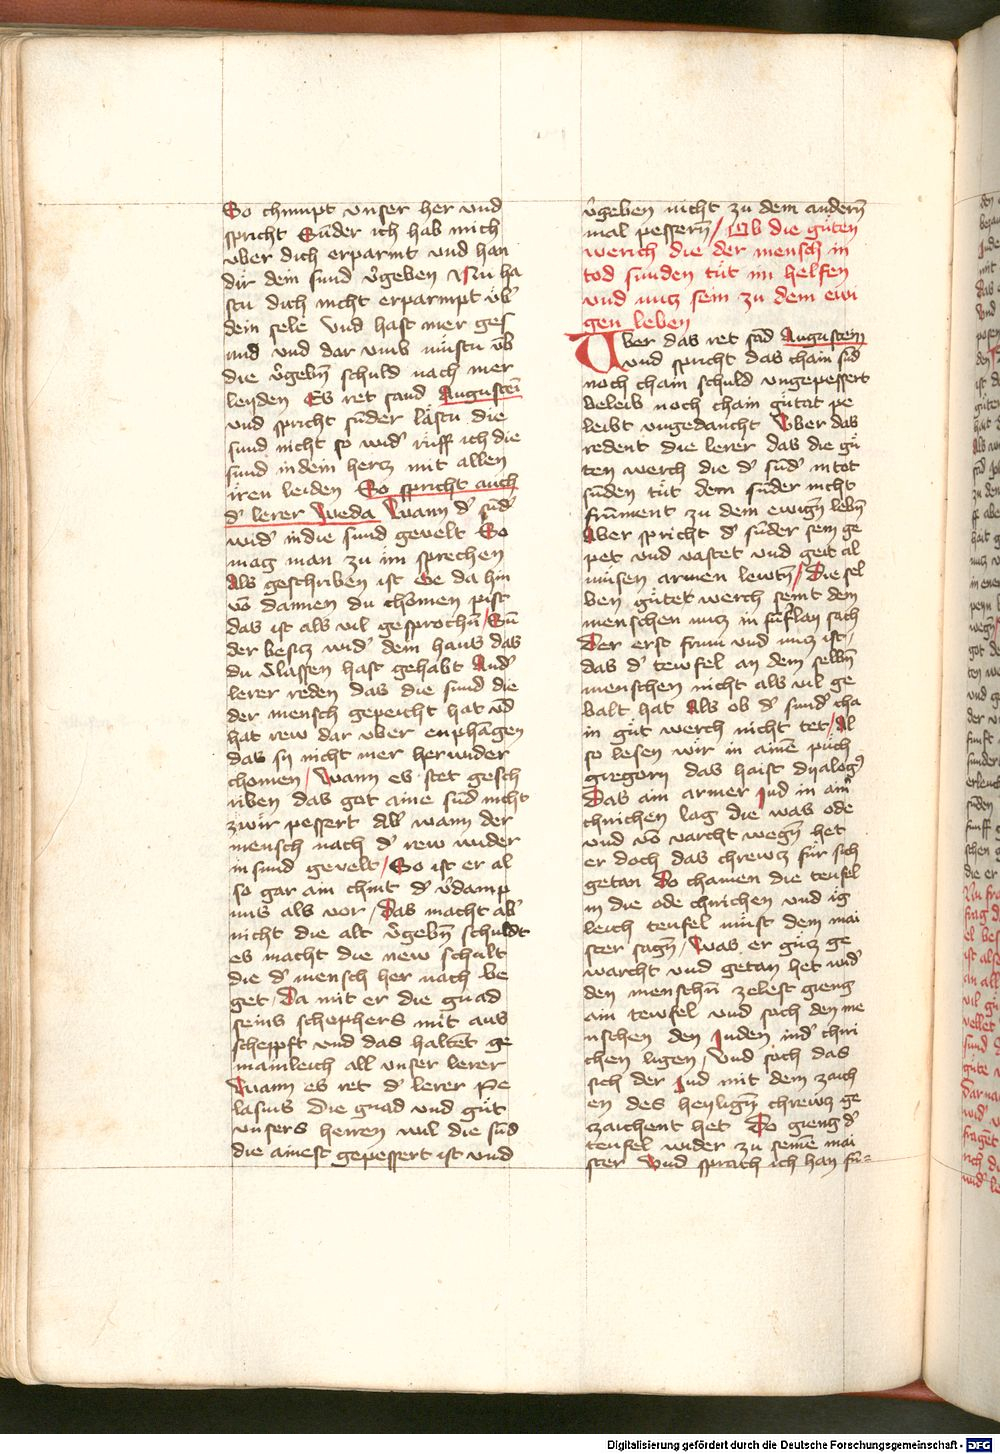 So chumpt vnser her vnd
spricht Sunder ich hab mich
vber dich erparmt vnd han
dir dein sund v̓geben Nu ha
stu dich nicht erparmpt vb̓
dein sele Vnd hast mer ges
und vnd dar vmb mustu vb
die v̓gebn̄ schuld nach mer
leyden Es ret sand Augustein
vnd spricht sunder lastu die
sund nicht so wid̓ ruff ich die
sund in dein hercz mit allen
iren leiden So spricht auch
d̓ lerer Weda Wann d̓ sud̓
wid̓ in die sund geuelt So
mag man zu im sprechen
Als geschriben ist Ge da hin
vō dannen du chomen pist
das ist als vil gesprochn̄ / Sun
der besicz wid̓ dem haus das
du v̓lassen hast gehabt And̓
lerer reden das die sund die
der mensch gepeicht hat vd
hat rew dar vber enphangen
das sy nicht mer her wider
chomen / Wann es stet gesch
riben das got aine sund nicht
zwir pessert Ab̓ wann der
mensch nach d̓ rew wider
in sund geuelt / So ist er al
so gar ain chint d̓ v̓damp
nus als vor / Das macht ab̓
nicht die alt v̓gebn̄ schuldt
es macht die new schult
die d̓ mensch her nach be
get / Da mit er die gnad
seins schephers mit aus
scheppft vnd das haltet ge
mainleich all vnser lerer
Wann es ret d̓ lerer Pe
lasius Die gnad vnd gut
vnsers herren wil die sud
die ainest gepessert ist vnd
v̓geben nicht zu dem andern̄
mal pessern̄ / Ob die guten
werich die der mensch in
tod sunden tut im helfen
vnd nucz sein zu dem ewi
gen leben
Vber das ret sād Augustein
vnd spricht das chain sūd
noch chain schuld vngepessert
beleib noch chain gutat pe
leibt vngedancht Vber das
redent die lerer das die gu
ten werch die d̓ sūd̓ in tot
sunden tut dem sunder nicht
frument zu dem ewign̄ lebn̄
Aber spricht d̓ sunder sein ge
pet vnd vastet vnd geit al
musen armen lewtn̄ / Die sel
ben gutet werch seint dem
menschen nucz in funflay sach
Der erst frum vnd nucz ist /
das d̓ tewfel an dem selbn̄
menschen nicht als vil ge
balt hat Als ob d̓ sund̓ cha
in gut werch nicht tet / Al
so lesen wir in aine puch
gregorij das haist dyalog̓
Das ain armer Jud in am
chirichen lag die was ode
vnd vō varcht wegn̄ het
er doch das chrewcz fur sich
getan Do chamen die teufel
in die ode chirichen vnd ig
leich teufel must dem mai
ster sagn̄ / Was er gucz ge
warcht vnd getan het wid̓
den menschn̄ zelest gieng
ain tewfel vnd sach den me
nschen den Juden in d̓ chiri
chen ligen / Vnd sach das
sich der Jud mit dem zaich
en des heylign̄ chrewcz ge
zaichent het Do gieng d̓
teufel wider zu seinē mai
ster Vnd sprach ich han fu=
Digitalisierung gefördert durch die Deutsche Forschungsgemeinschaft - DFG